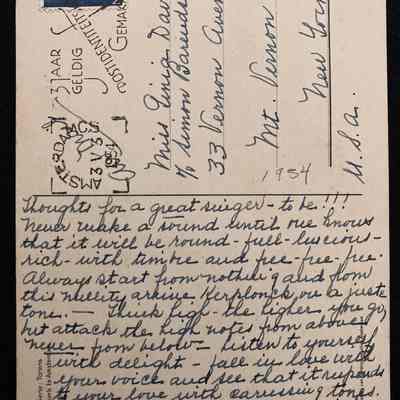 3 JAAR
GELDIG
POSTIDENTITEITS
GEMAK
AMSTERDAM CS
3 V
1954
Miss Enia Dav
c/o Simon Barende
33 Vernon Aven
Mt. Vernon
New York
U.S.A.
1954
Thoughts for a great singer - to be!!!
Never make a sound until one knows
that it will be round - full - luscious -
rich - with timbre and free - free - free.
Always start from nothing and from
this nullity arrive kerplonk on a juste
tone. — Think high - the higher you go,
but attack the high notes from above
never from below - listen to yourself
with delight - fall in love with
your voice and see that it responds
to your love with caressing tones.